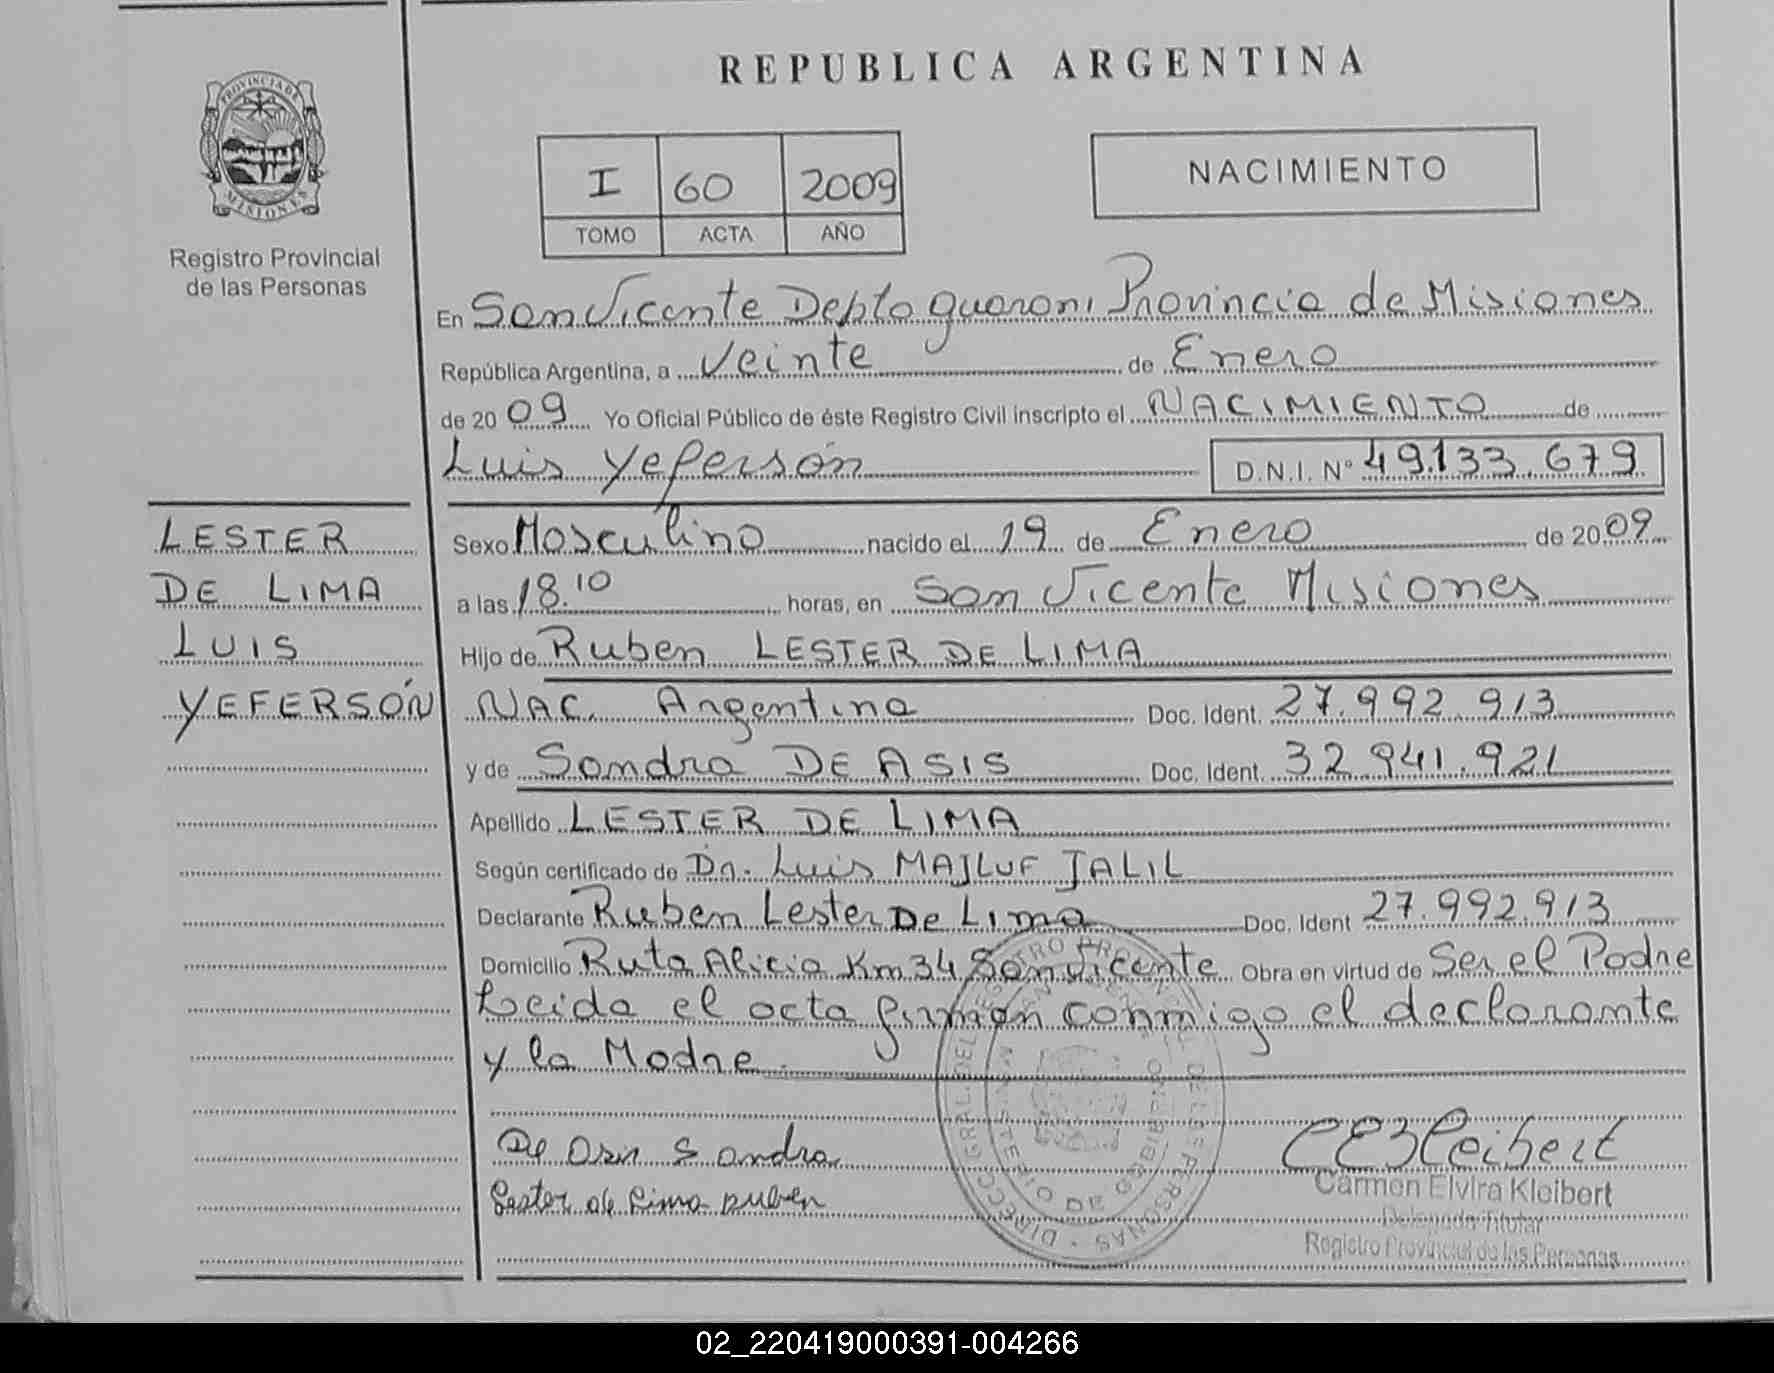 REPUBLICA ARGENTINA
PROVINCIA DE
MISIONES
Registro Provincial
de las Personas
I 60 2009
TOMO ACTA AÑO
NACIMIENTO
En San Vicente Depto Guarani Provincia de Misiones
República Argentina, a Veinte de Enero
de 2009 Yo Oficial Público de éste Registro Civil inscripto el NACIMIENTO de
Luis Yeferson D.N.I. Nº 49.133.679
LESTER
DE LIMA
LUIS
YEFERSÓN
Sexo Masculino nacido el 19 de Enero de 2009
a las 18.10 horas, en San Vicente Misiones
Hijo de Ruben LESTER DE LIMA
NAC. Argentina Doc. Ident. 27.992.913
y de Sandra DE ASIS Doc. Ident. 32.941.921
Apellido LESTER DE LIMA
Según certificado de Dr. Luis MAJLUF JALIL
Declarante Ruben Lester De Lima Doc. Ident 27.992.913
Domicilio Ruta Alicia Km 34 San Vicente Obra en virtud de Ser el Padre
Leida el acta firman conmigo el declarante
y la Madre.
De Asis Sandra
Lester de Lima Ruben
CEKleibert
Carmen Elvira Kleibert
Delegada Titular
Registro Provincial de las Personas
02_220419000391-004266